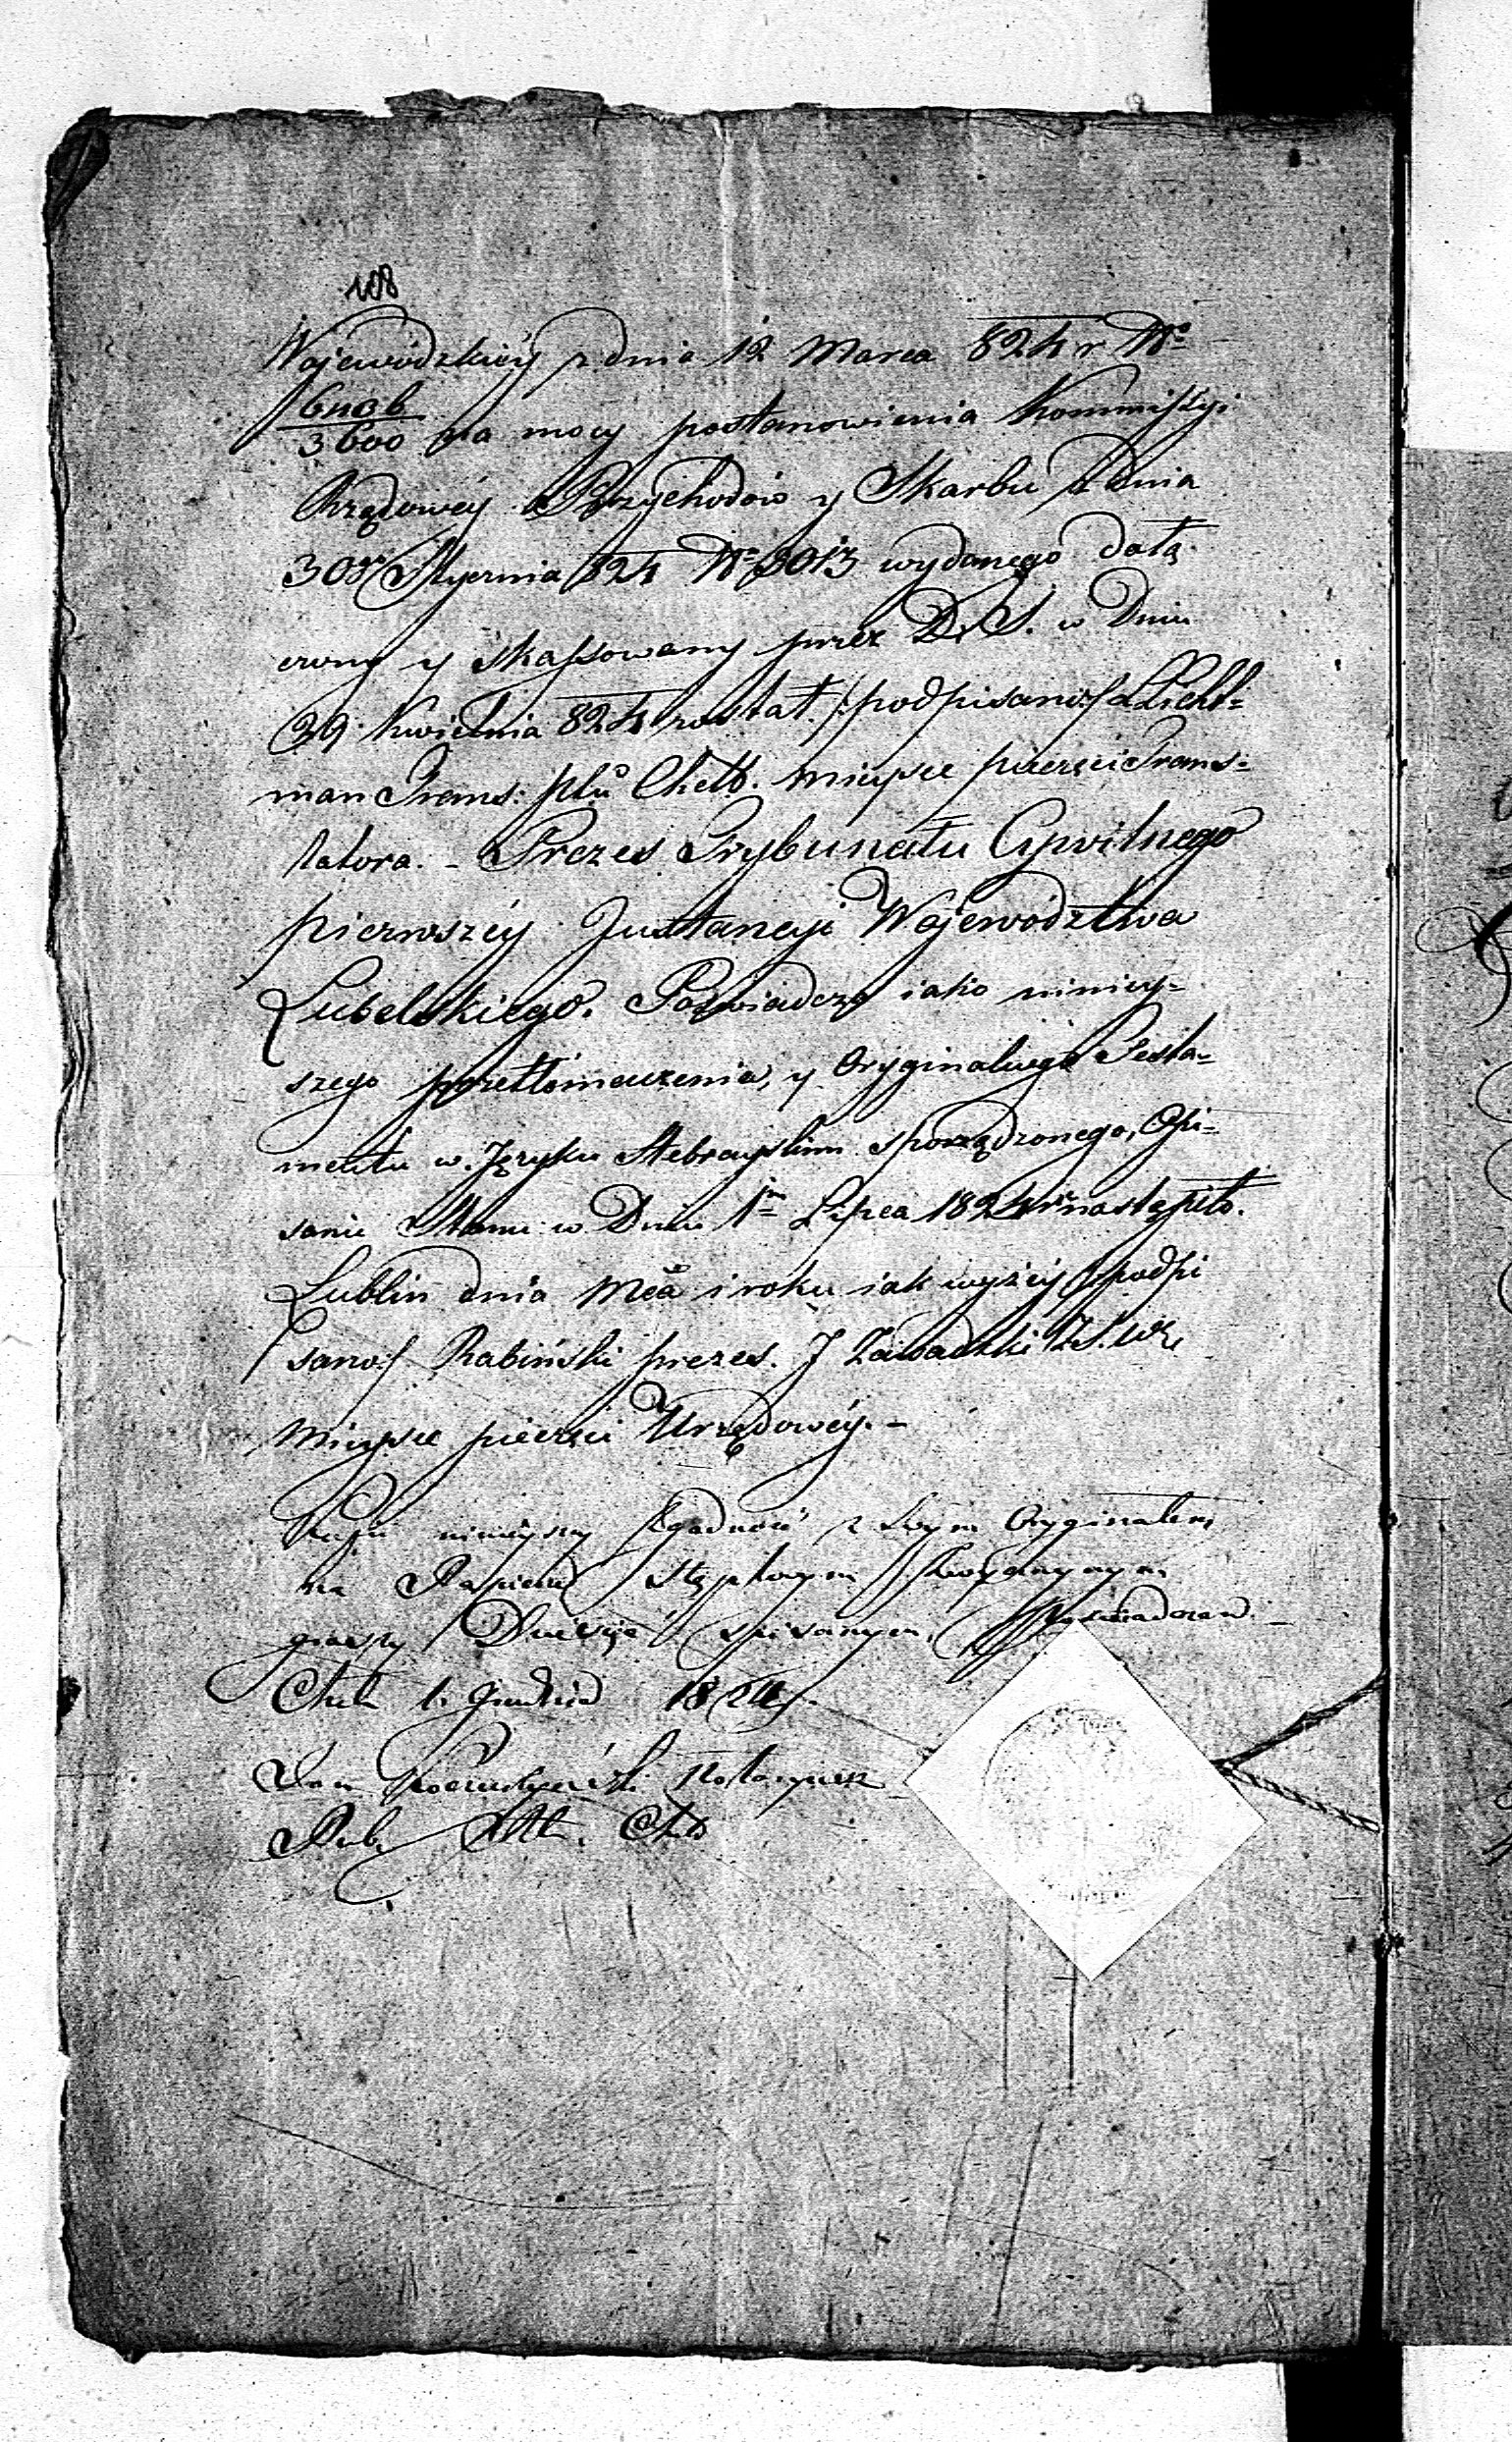 108
Wojewódzkiéy z dnia 12 Marca 824 r No
3600 na mocy postanowienia Kommissyi
Rządowéy Przychodów y Skarbu z Dnia
30go Stycznia 824 No wydanego dołą
czony y skassowany przez D. S. w Dniu
29 Kwietnia 824 został. /:podpisano:/ Licht=
man Trans: Ptu Chełs. mieysce pieczęci Trans=
latora. - Prezes Trybunału Cywilnego
pierwszéy Instancyi Województwa
Lubelskiego. Poświadcza iako niniey=
szego przetłómaczenia, y Oryginalnego Testa=
mentu w Języku Hebrayskim sporządzonego, Opi=
sanie Stanu w Dniu 1m Lipca 1824 r nastąpiło.
Lublin dnia Mca i roku iak wyżéy /:podpi
sano:/ Rabiński prezes. J Zawadzki
Mieysce pieczęci Urzędowéy. -
Kopii ninieyszy zgodność z swym Oryginałem
na Papierze stęplowym
groszy Dziesięć spisanym, Poświadczam
Chełm 1 Grudnia 1824
Notaryusz
Pub. Ptu. Chełs